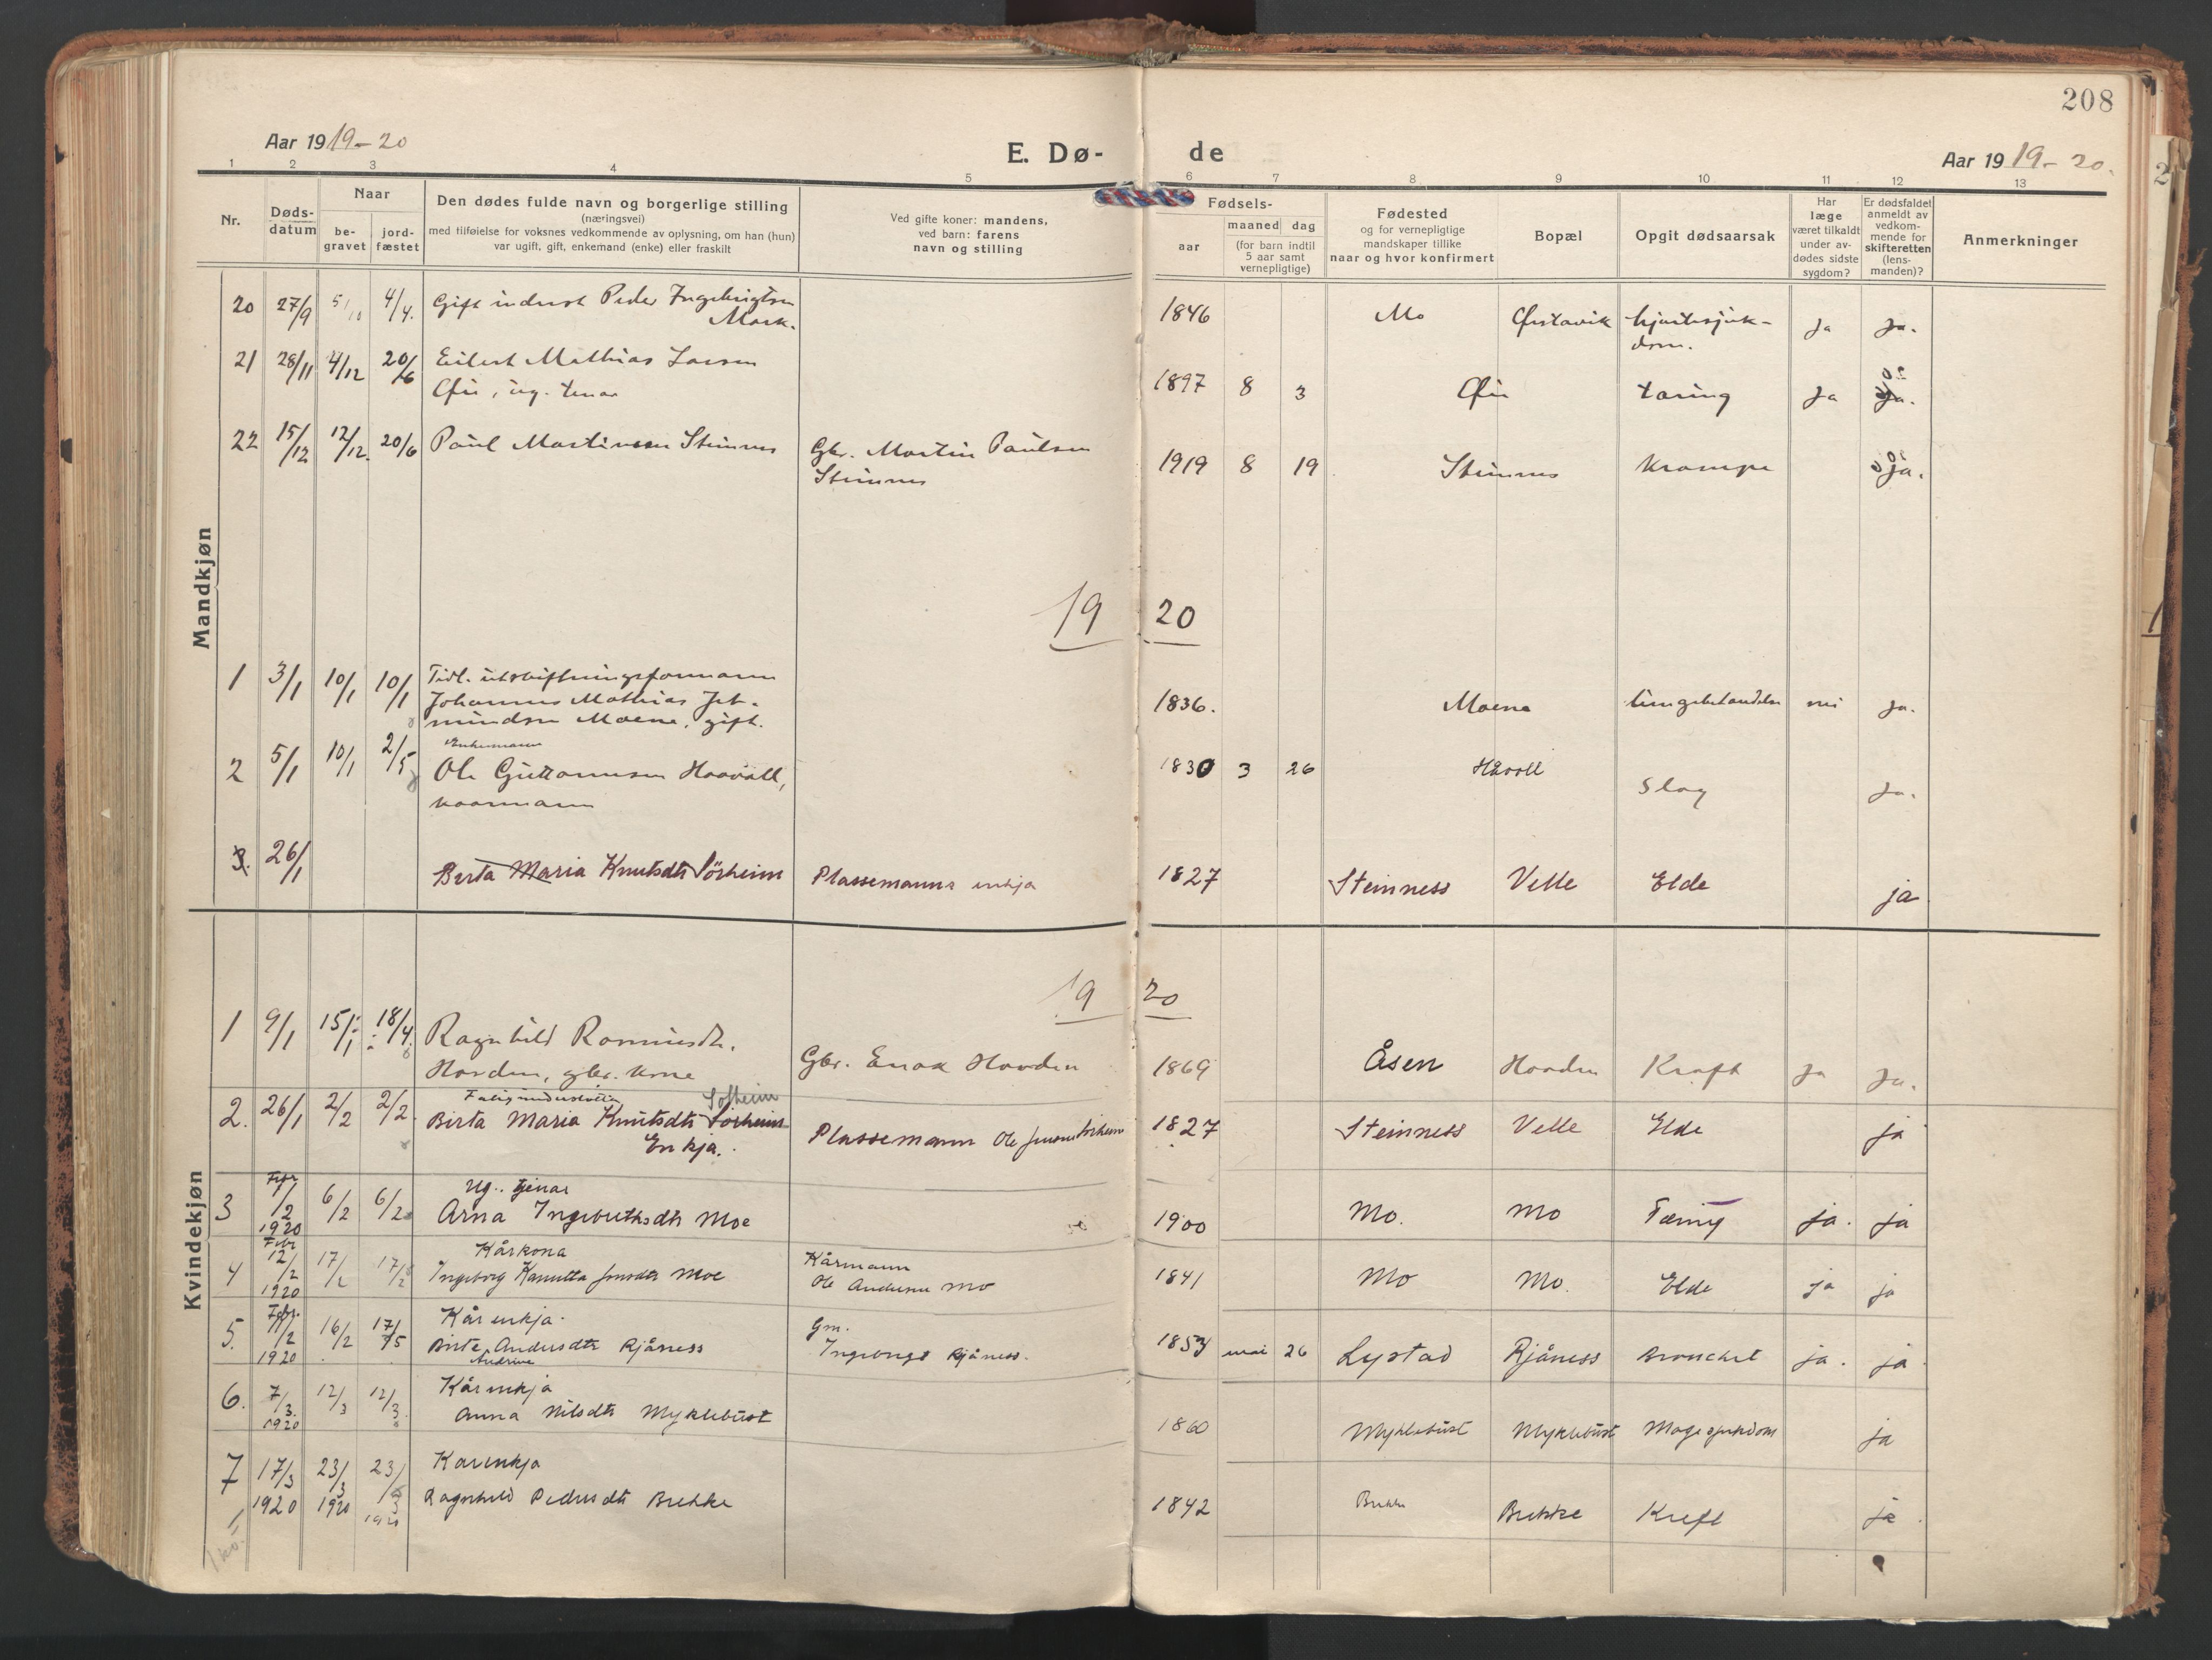 208
Aar 1919-20
E. Dø-
de
Aar 1919-20.
1 2 3 4 5 6 7 8 9 10 11 12 13
Nr.
Døds-
datum
Naar
be-
gravet
jord-
fæstet
Den dødes fulde navn og borgerlige stilling
(næringsvei)
med tilføielse for voksnes vedkommende av oplysning, om han (hun)
var ugift, gift, enkemand (enke) eller fraskilt
Ved gifte koner: mandens,
ved barn: farens
navn og stilling
Fødsels-
aar
maaned dag
(for barn indtil
5 aar samt
vernepligtige)
Fødested
og for vernepligtige
mandskaper tillike
naar og hvor konfirmert
Bopæl
Opgit dødsaarsak
Har
læge
været tilkaldt
under av-
dødes sidste
sygdom?
Er dødsfaldet
anmeldt av
vedkom-
mende for
skifteretten
(lens-
manden)?
Anmerkninger
Mandkjøn
20 27/9 5/10 4/4. Gift inderst Peder Ingebrigtsen
Mork.
1846 Mo Ørstavik hjartesjuk-
dom. ja ja.
21 28/11 4/12 20/6 Eilert Mathias Larsen
ug. tenar
1897 8 3 tæring ja ja.
22 15/12 17/12. 20/6 Paul Martinssen Steinnes Gbr. Martin Paulsen
Steinnes
1919 8 19 Steinnes Krampe ja.
19 20
1 3/1 10/1 10/1 Tidl. utskiftningsformann
Johannes Mathias Jet-
mundsen Moene, gift.
1836. Moene lungebetændelse nei ja.
2 5/1 10/1 2/5 Enkemann
Ole Guttormsen Haavoll,
kaarmann
1830 3 26 Håvoll Slag ja.
3. 26/1 Berta Maria Knutsdtr Sörheim Plassemanns enkja 1827 Steinness Velle Elde ja
Kvindekjøn
19 20
1 9/1 15/1 18/4. Ragnhild Rasmusdtr.
Hovden, gbr. kone
Gbr. Enok Hovden 1869 Åsen Hovden Kræft ja ja.
2. 26/1 2/2 2/2. Solheim
Birta Maria Knutsdtr Sörheim
Enkja.
Plassemann Ole Jensen Sörheim 1827 Steinness Velle Elde ja
3 Febr 1/2 1920 6/2 6/2 Ug. tjenar
Arna Ingebrigtsdtr Moe
1900 Mo. Mo Tæring ja. ja
4 Febr 12/2 1920 17/2 17/2 Kårkona
Ingeborg Kanutta Jonsdtr Moe
Kårmann
Ole Andersen Mo
1841 Mo Mo. Elde ja ja
5. Febr. 11/2 1920 16/2 17/5 Kårenkja.
Birte Andersdtr Rjåness
Andrine
Gm.
Ingebrigt Rjåness.
1853 mai 26 Lystad Rjåness Bronchit ja. ja
6. 7/3. 1920 12/3 12/3. Kårenkja
Anna Nilsdtr Myklebust
1860 Myklebust Myklebust Magesjukdom ja
7 17/3 1920 23/3 1920 23/3 1920 Kårenkja
Ragnhild Pedersdtr Brekke
1842 Brekke Brekke Kreft ja